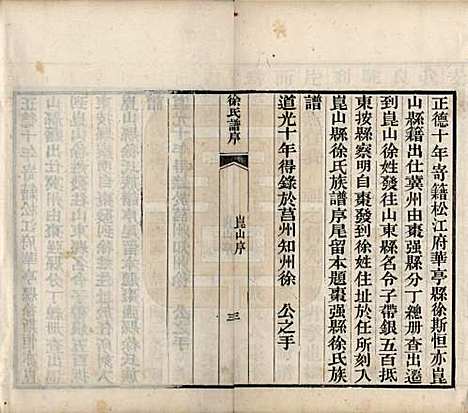 正德十年寄籍松江府華亭縣徐斯恒亦崑
山縣籍出仕冀州由棗强縣分丁總册查出遷
到崑山徐姓發往山東縣名令子帶銀五百抵
東按縣察明自棗發到徐姓住址於任所刻入
崑山縣徐氏族譜序尾留本題棗强縣徐氏族
譜
道光十年得錄於莒州知州徐　公之手
徐氏譜序
崑山序
三